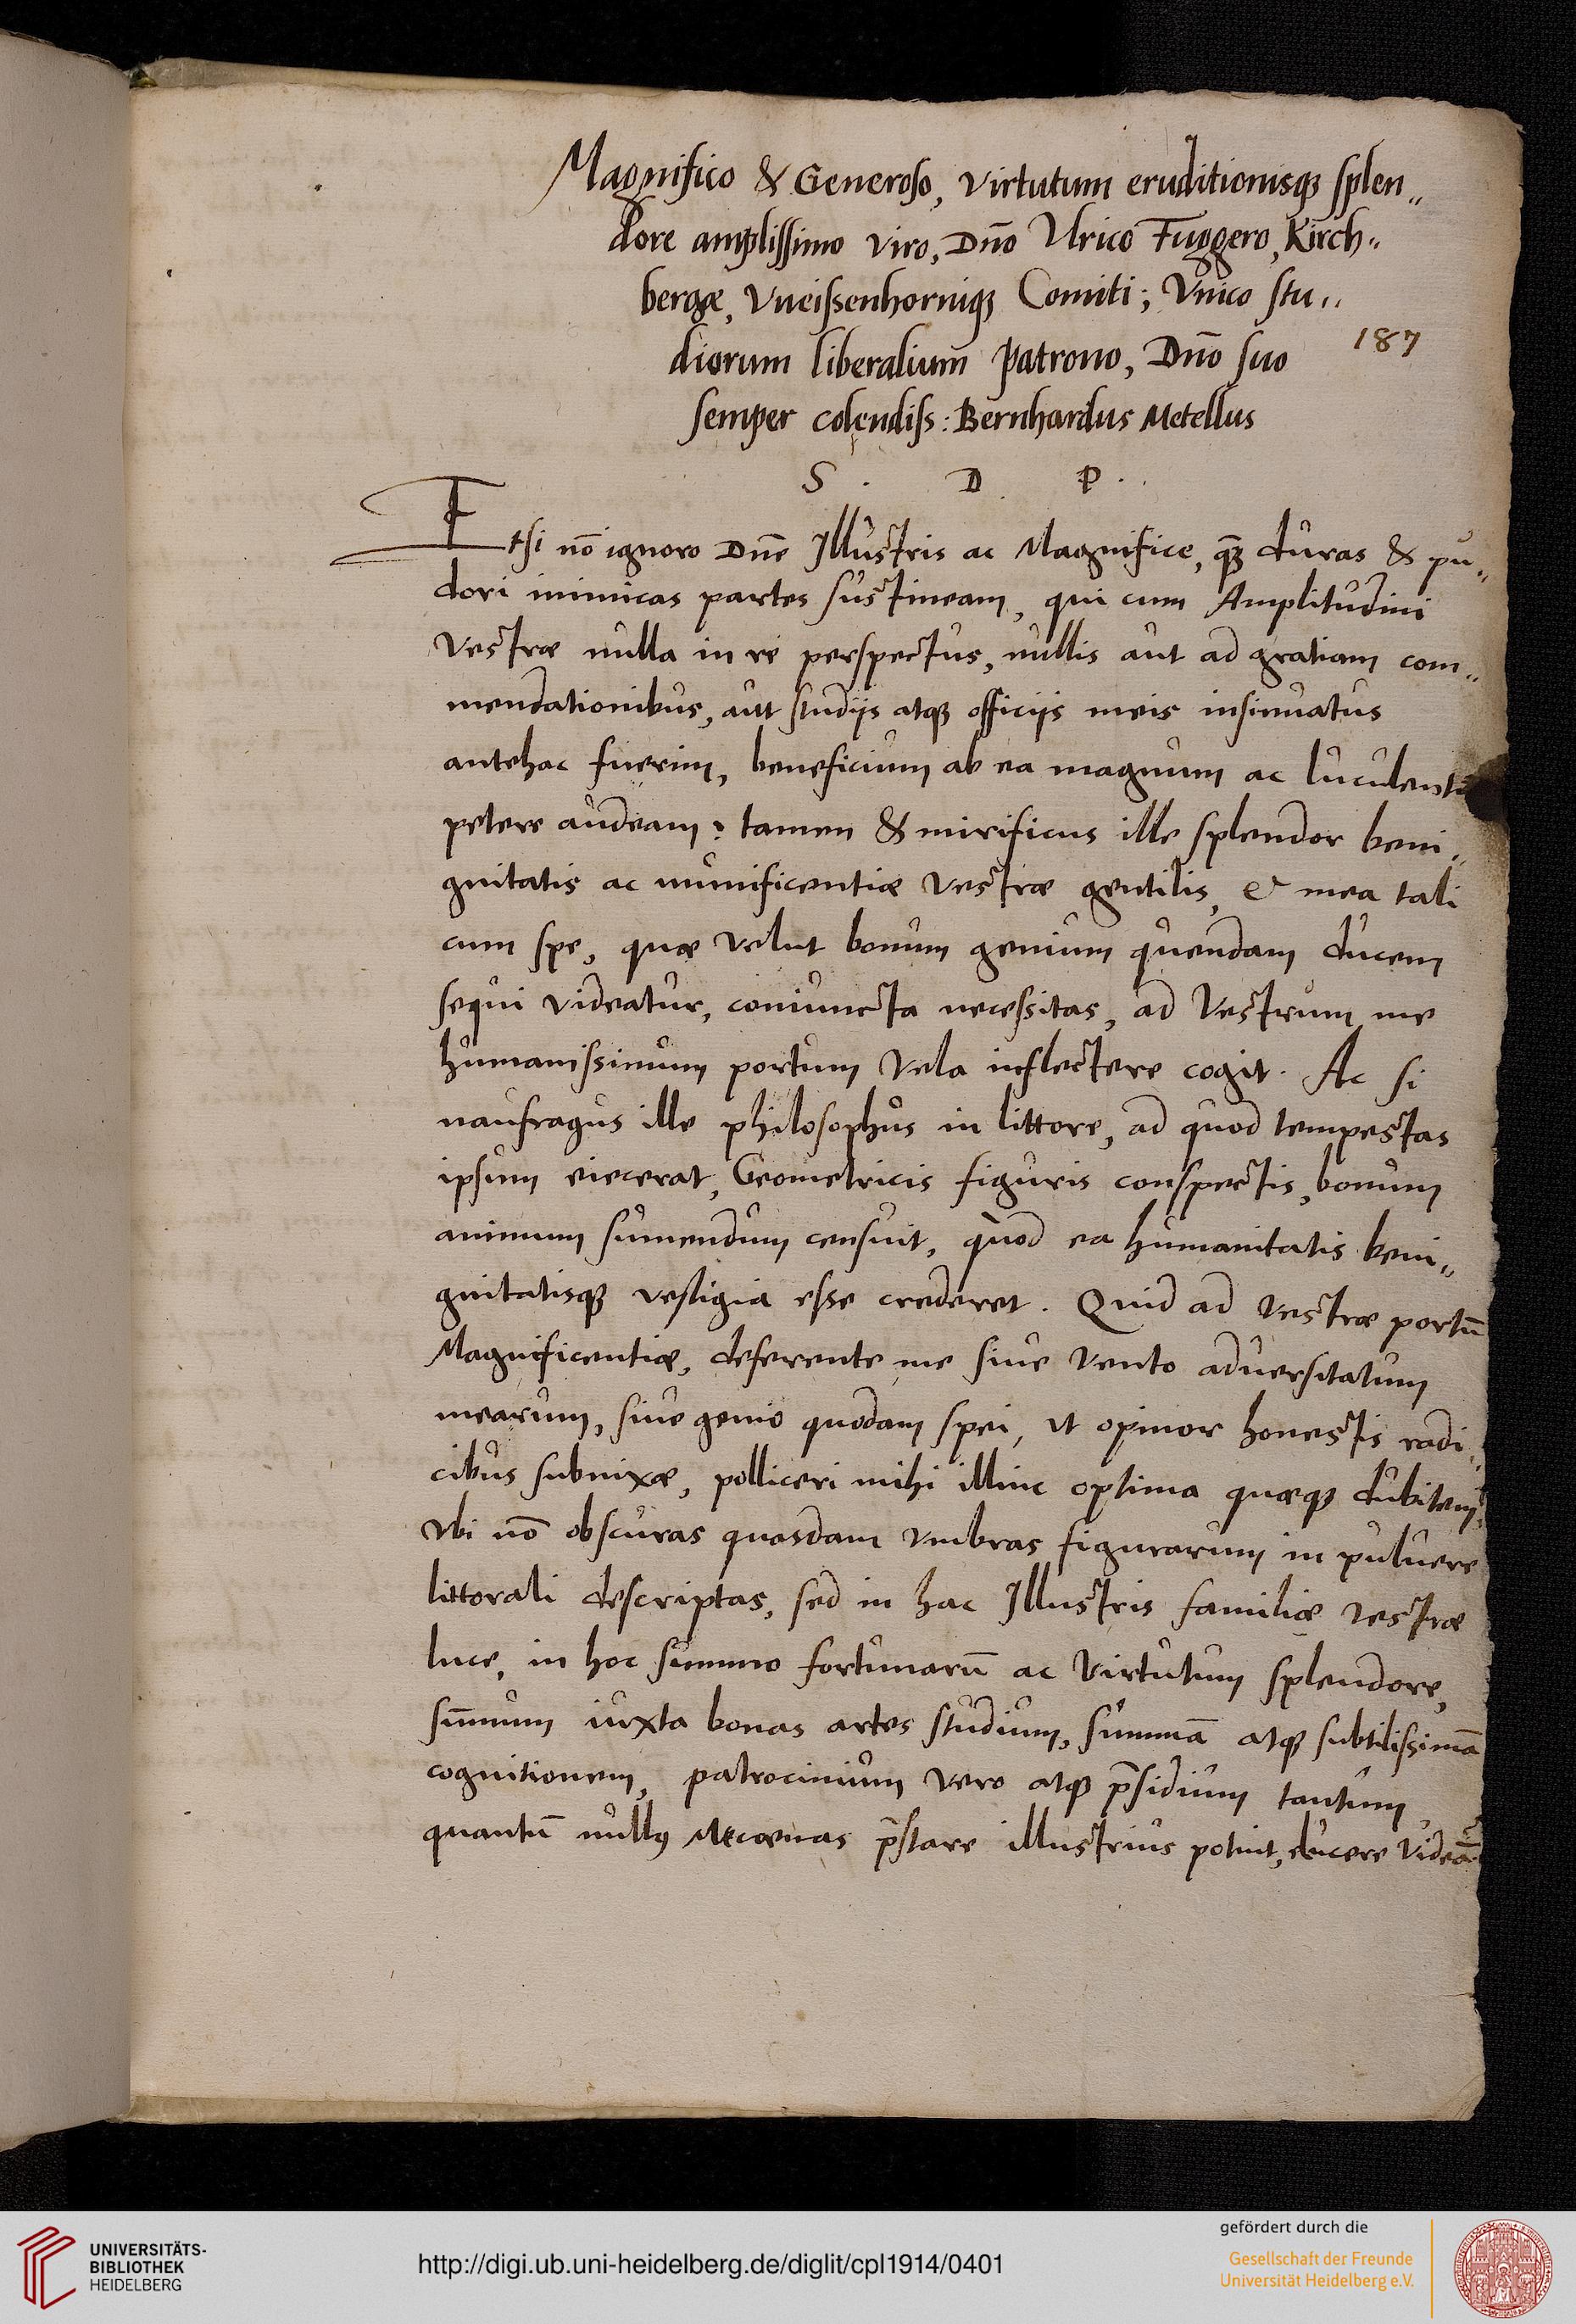 Magnifico & Generoso, Virtutum eruditionisq₃ splen„
dore amplissimo viro, Dn̄o Ulrico Fuggero, Kirch„
bergæ, Vueissenhorniq₃ Comiti; Vnico stu„
diorum liberalium Patrono, Dn̄o suo
187
semper colendiss: Bernhardus Metellus
S . D . P .
Etsi nō ignoro Dn̄e Illustris ac Magnifice, duras & pu„
dori inimicas partes sustineam, qui cum Amplitudini
Vestræ nulla in re perspectus, nullis aut ad gratiam com„
mendationibus, aut studijs atq₃ officijs meis insinuatus
antehac fuerim, beneficium ab ea magnum ac luculentū
petere audeam: tamen & mirificus ille splendor beni„
gnitatis ac munificentiæ Vestræ gentilis, & mea tali
cum spe, quæ velut bonum genium quendam ducem
sequi videatur, coniuncta necessitas, ad Vestrum me
humanissimum portum vela inflectere cogit. Ac si
naufragus ille philosophus in littore, ad quod tempestas
ipsum eiecerat, Geometricis figuris conspectis, bonum
animum sumendum censuit, quòd ea humanitatis beni„
gnitatisq₃ vestigia esse crederet. Quid ad Vestræ portū
Magnificentiæ, deferente me siue vento aduersitatum
mearum, siue genio quodam spei, ut opinor honestis radi„
cibus subnixæ, polliceri mihi illinc optima quæq₃ dubitem,
Vbi nō obscuras quasdam vmbras figurarum in puluere
littorali descriptas, sed in hac Illustris familiæ Vestræ
luce, in hoc summo fortunarū ac Virtutum splendore,
sum̄um iuxta bonas artes studium, summā atq₃ subtilissimā
cognitionem, patrocinium vero atq₃ p̄sidium tantum,
quantū nullus Mecænas p̄stare illustrius potuit, elucere videā
UNIVERSITÄTS-
BIBLIOTHEK
HEIDELBERG
http://digi.ub.uni-heidelberg.de/diglit/cpl1914/0401
gefördert durch die
Gesellschaft der Freunde
Universität Heidelberg e.V.